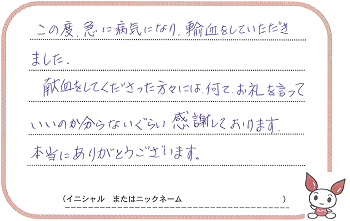 この度、急に病気になり、輸血をしていただき
ました。
献血をしてくださった方々には、何て、お礼を言って
いいのか分らないぐらい感謝しております。
本当にありがとうございます。
（イニシャル　またはニックネーム　　　　　　　　）